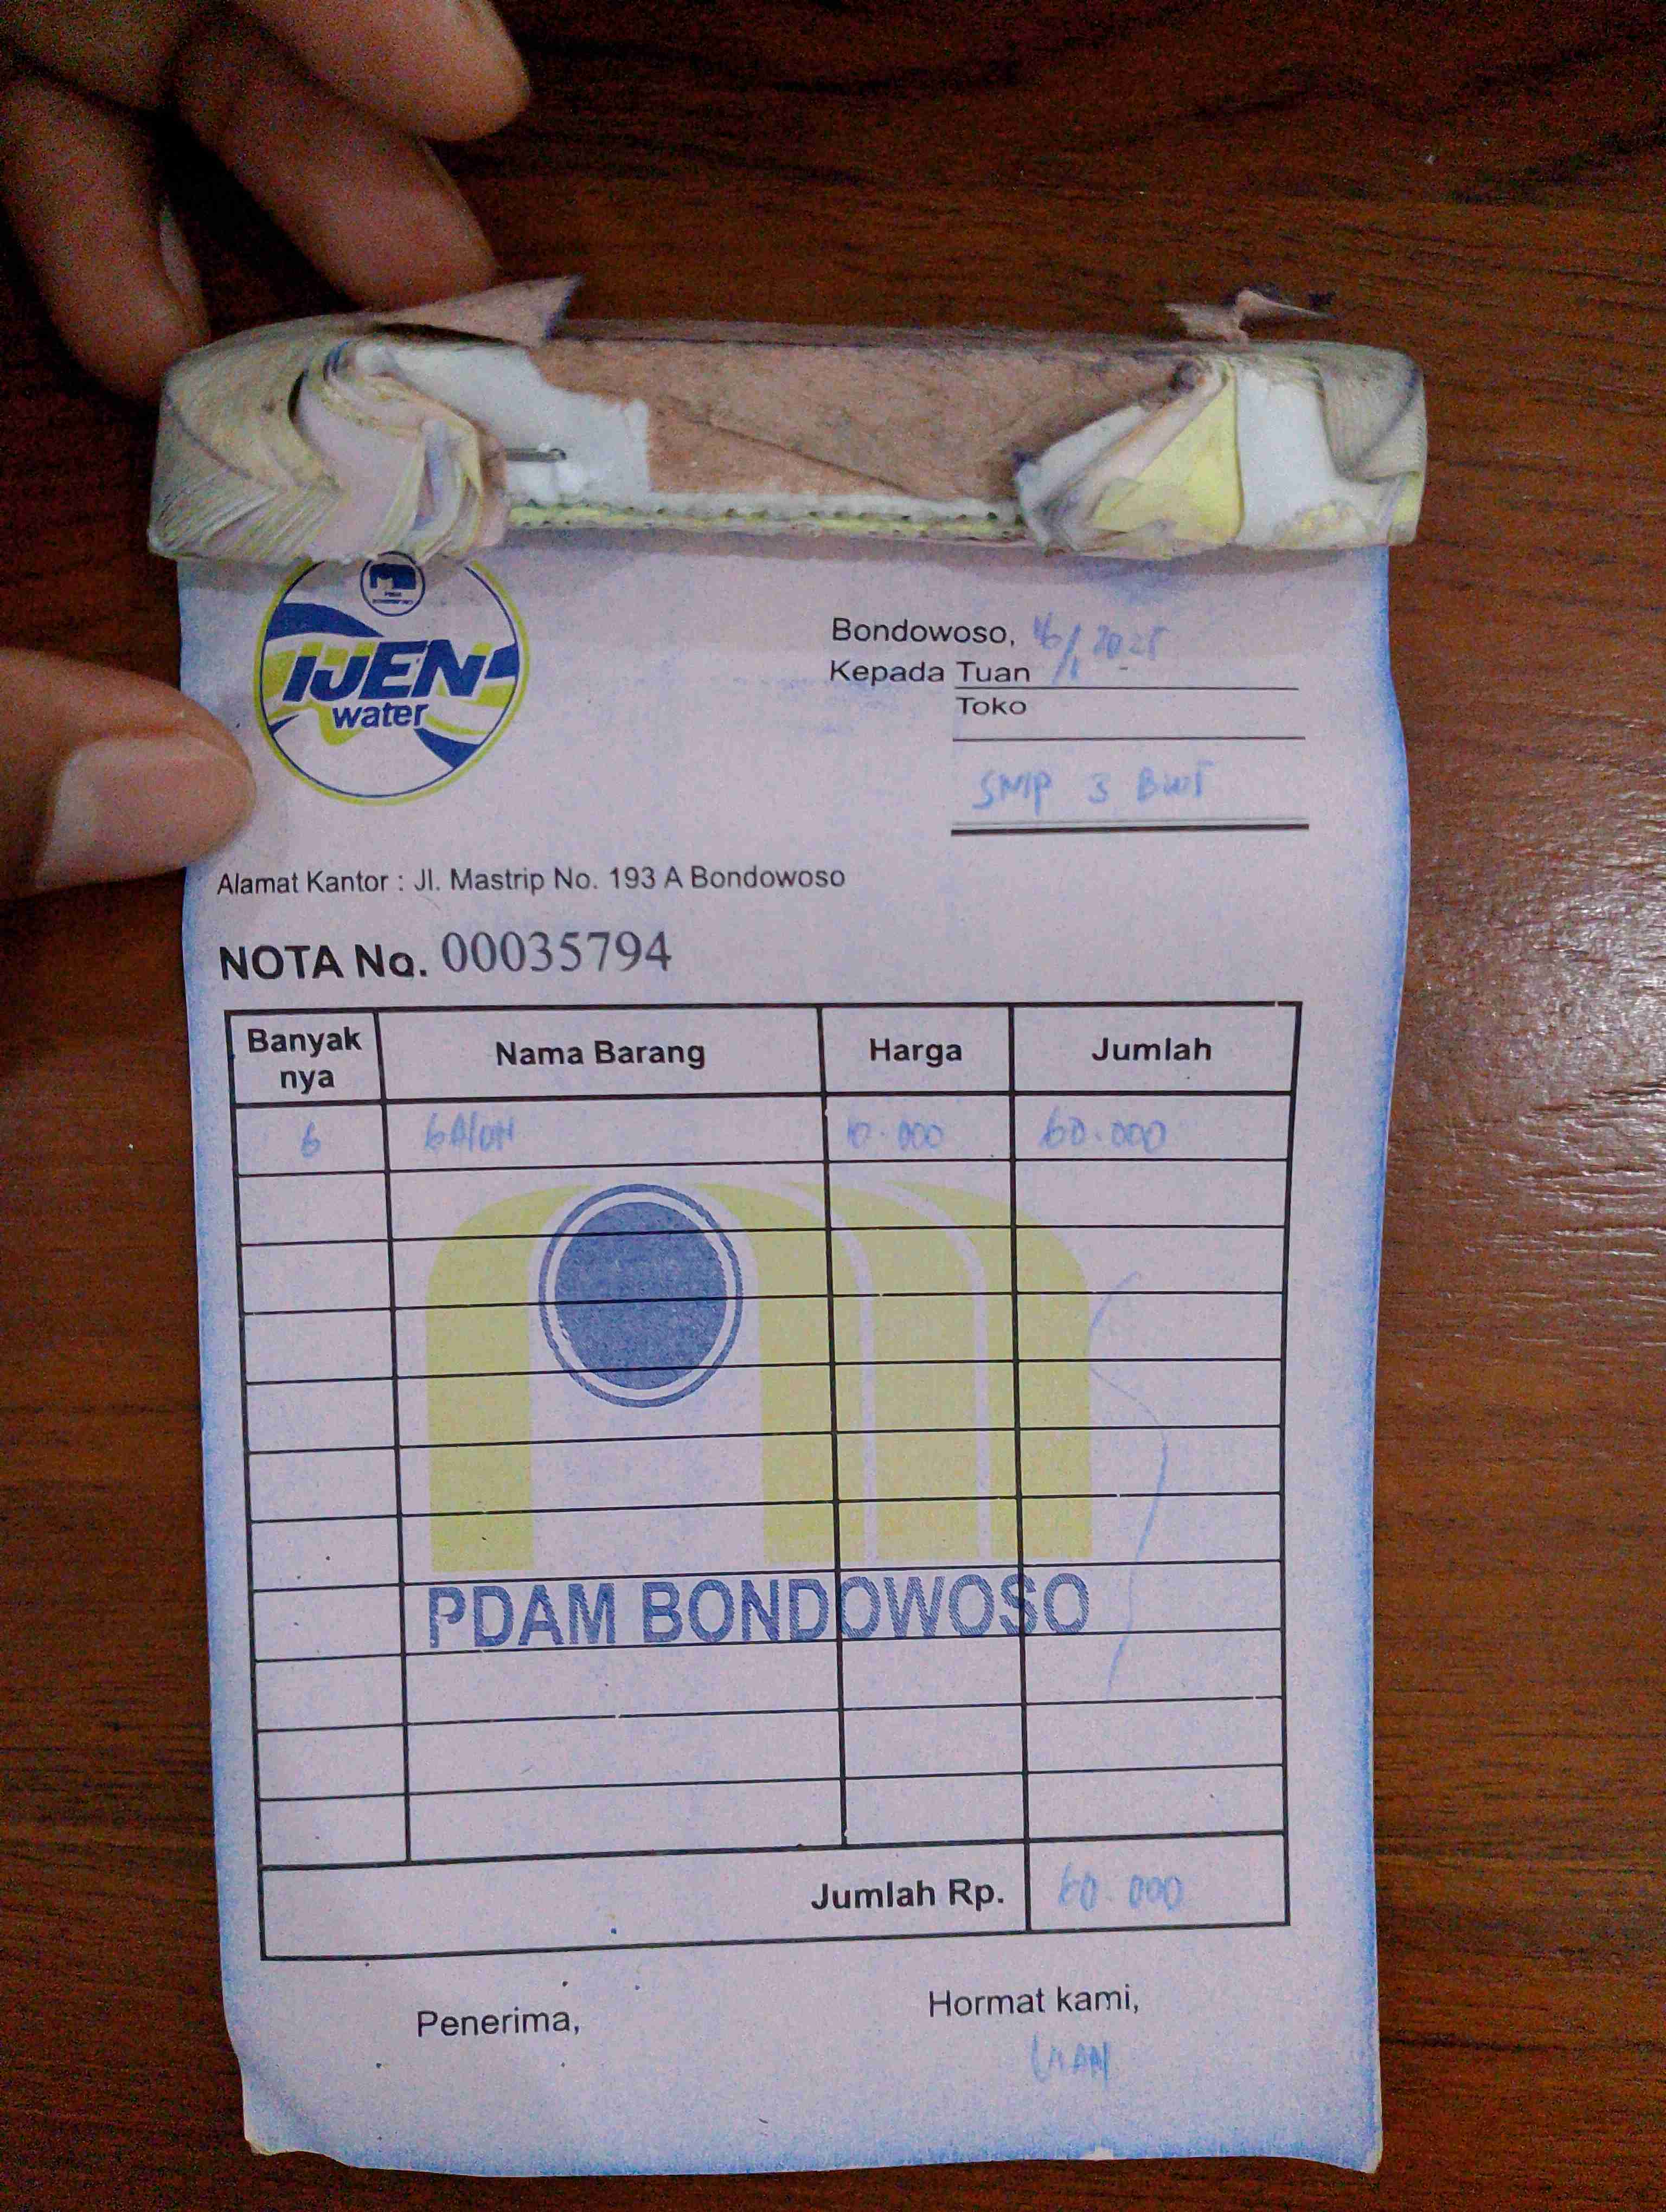 IJEN
water
Bondowoso, 16/1 2025
Kepada Tuan
Toko
SMP 3 BWS
Alamat Kantor : Jl. Mastrip No. 193 A Bondowoso
NOTA No. 00035794
Banyak nya Nama Barang Harga Jumlah
6 GAlON 10.000 60.000
PDAM BONDOWOSO
Jumlah Rp. 60.000
Penerima, Hormat kami,